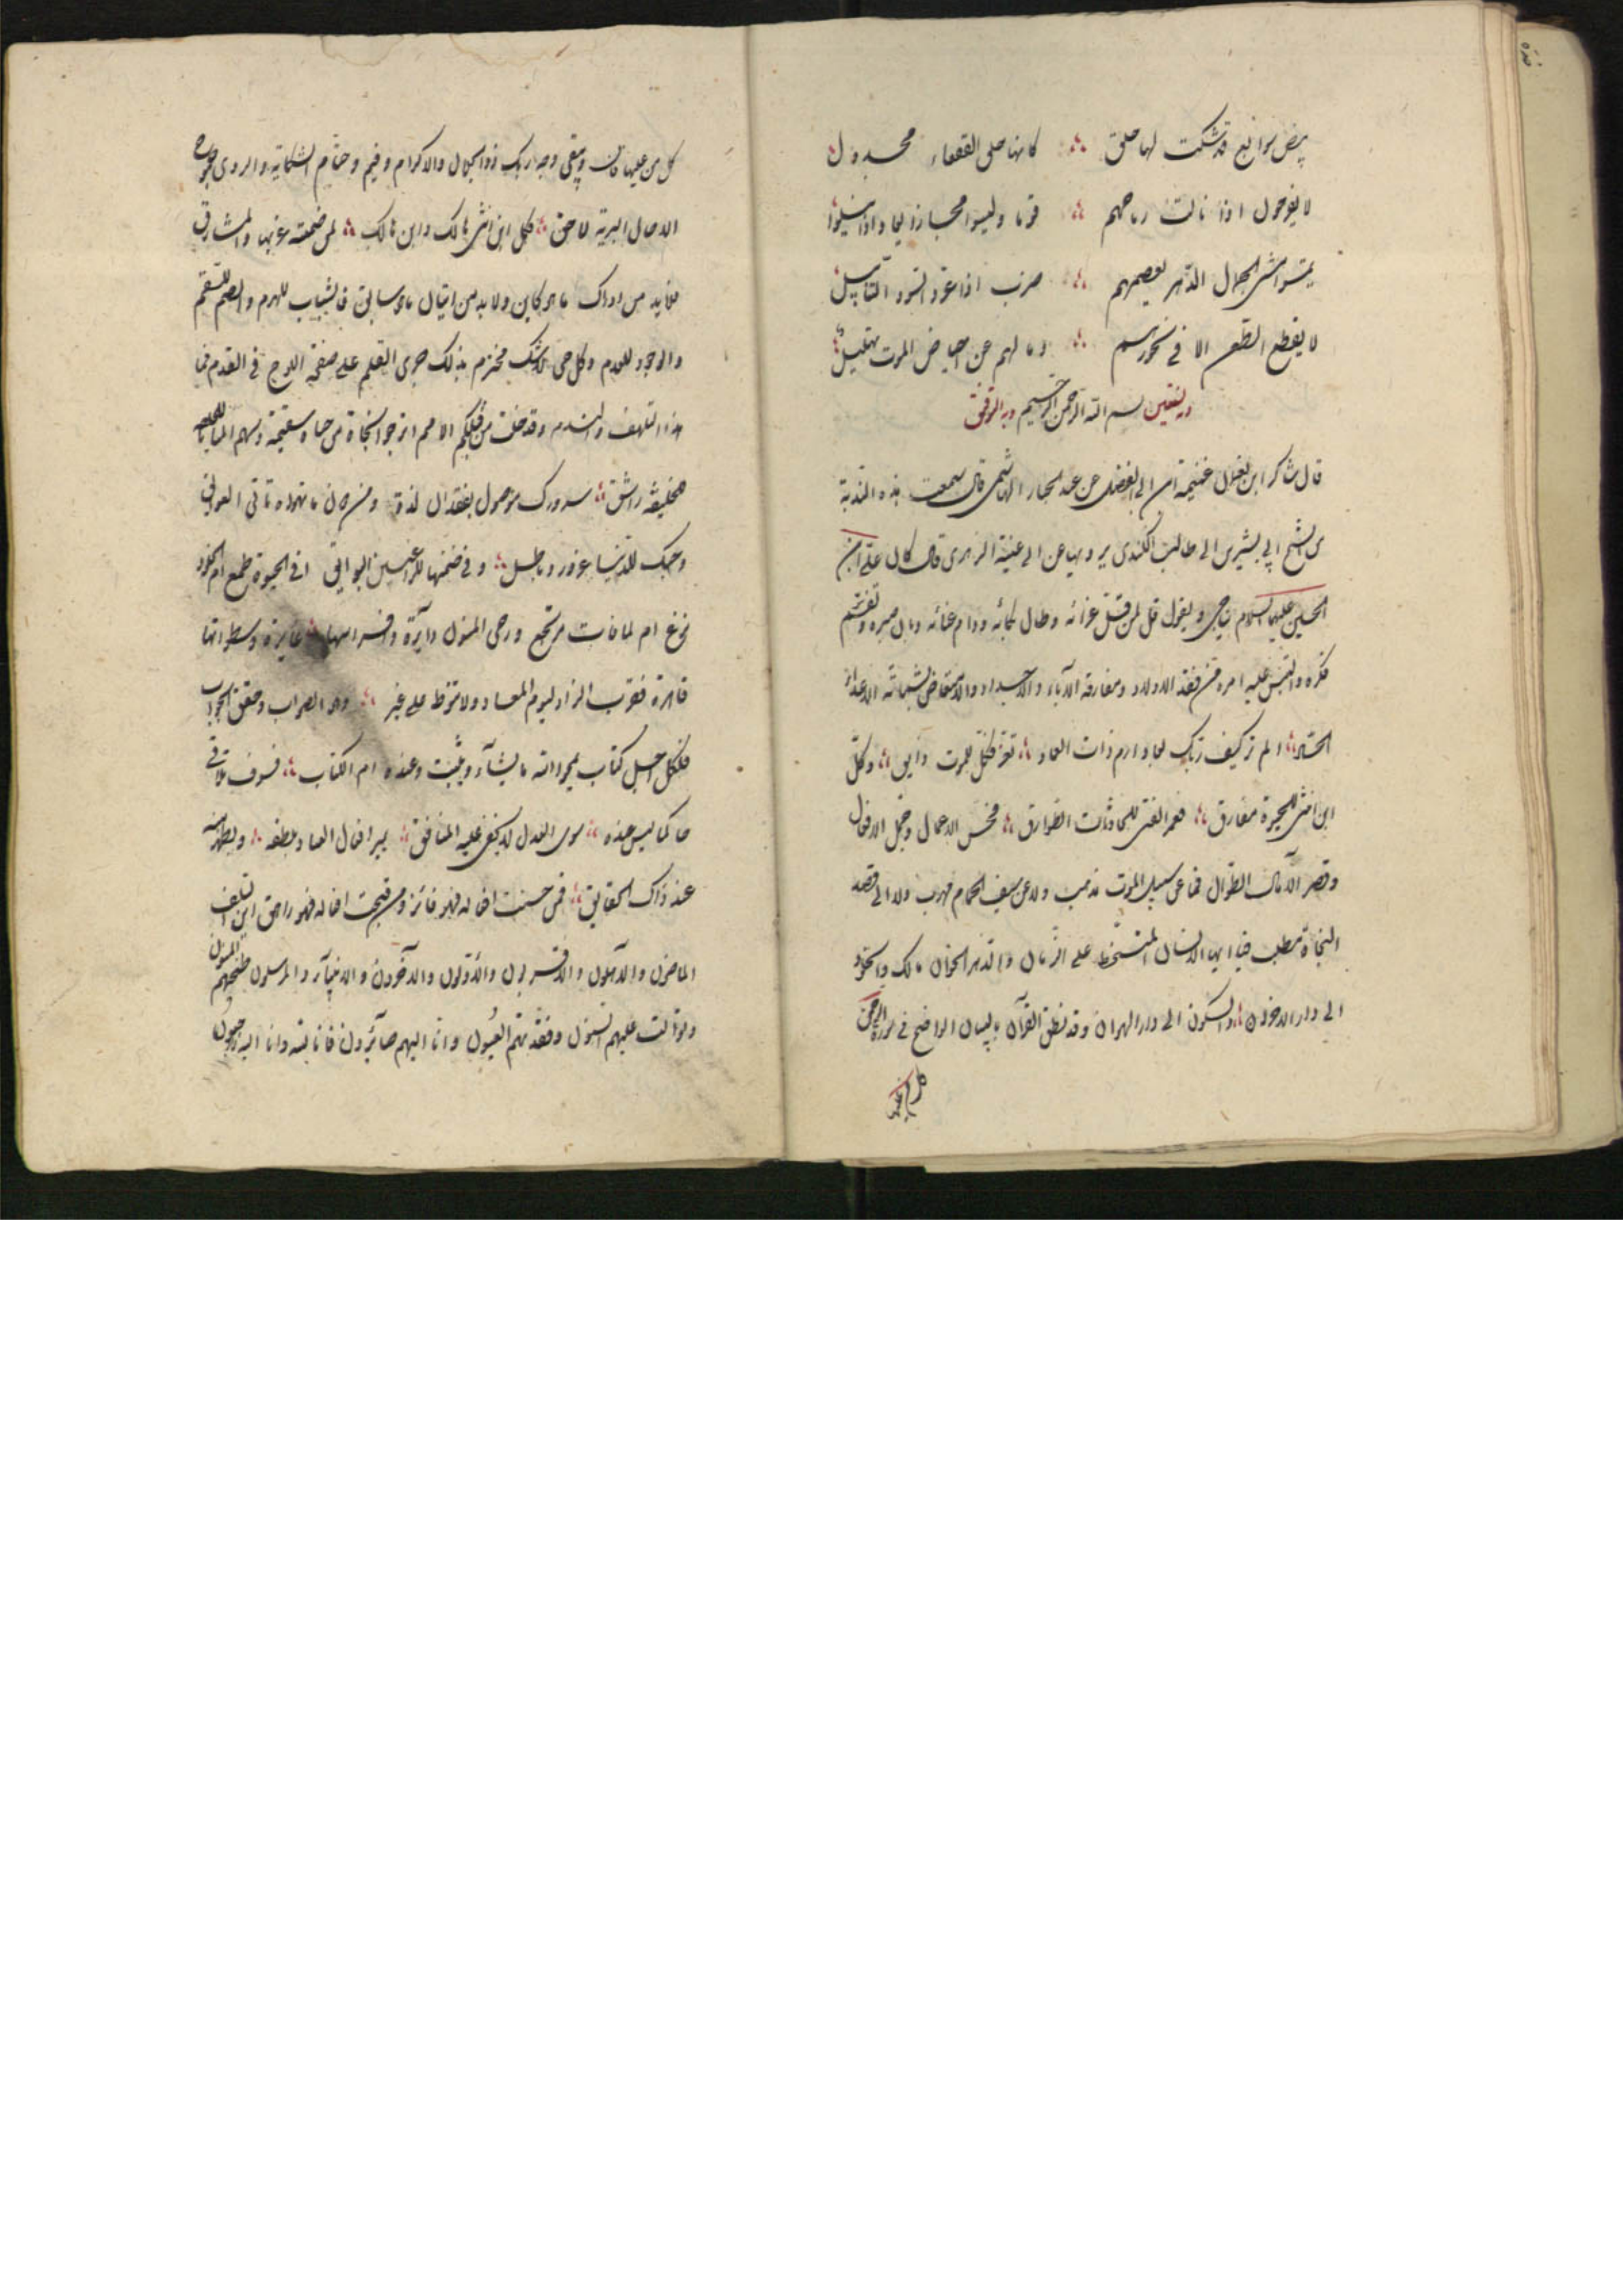 بيض سوابغ قد شكت لها حلق ∴ كانها حلق القفعاء مجدول
لا يفرحون اذا نالت رماحهم ∴ قوما وليسوا مجازيعا واذا نيلوا
يمشون مشى الجمال الزهر يعصمهم ∴ ضرب اذا عرد السود التنابيل
لا يقطع الطعن الا فى نحورهم ∴ وما لهم عن حياض الموت تهليل
وبه نستعين بسم الله الرحمن الرحيم وبه التوفيق
قال شاكر ابن غنيمة ابن ابى الفضل عن عبد الجبار الهاشمى قال سمعت هذه الندبة
من الشيخ ابى بشر بن ابى طالب الكندى يرويها عن ابى عيينة الزهرى قال كان على ابن
الحسين عليهما السلام يناجى ويقول قل لمن قل عزائه وطال بكائه ودام عنائه وبان صبره وتقسم
فكره والتبس عليه امره من فقد الاولاد ومفارقة الآباء والاجداد والامتعاض بشماتة الاعداء
الم تر كيف ربك بعاد ارم ذات العماد ∴ تعز فكل للموت ذايق ∴ وكل
ابن انثى للحيوة مفارق ∴ فعمر الفتى للحادثات الطوارق ∴ فحسن الاعمال وجمل الافعال
وقصر الآمال الطوال فما عن سبيل الموت مذهب ولا عن سيف الحمام مهرب ولا الى قصد
النجاة مطلب فيا ايها الانسان المتسخط على الزمان والدهر الخوان مالك والخلود
الى دار الاحزان ∴ والسكون الى دار الهوان وقد نطق القرآن بالبيان الواضح فى سورة الرحمن
كل من عليها
كل من عليها فان ويبقى وجه ربك ذو الجلال والاكرام وفيم وحتام الشكاية والردى جموح
الى آجال البرية لاحق ∴ فكل ابن انثى هالك وابن هالك ∴ لمن ضمنته غربها والمشارق
فلا بد من ادراك ما هو كاين ولا بد من اتيان ما هو سابق فالشباب للهرم والصحة للسقم
والوجود للعدم وكل حى لا شك مخترم بذلك جرى القلم على صفحة اللوح فى القدم فما
هذا التلهف والندم وقد خلت من قبلكم الامم اترجو نجاة من حياة سقيمة وسهم المنايا
للخليقة راشق ∴ سرورك موصول بفقدان لذة ومن دون ما تهواه تاتى العوايق
وحبك للدنيا غرور وباطل ∴ وفى ضمنها للراغبين البوايق افى الحيوة طمع ام الى الخلود
نزع ام لما فات مرتجع ورحى المنون دائرة وفراسها غايرة وسطواتها
قاهرة فقرب الزاد ليوم المعاد ولا تتوط على غير ∴ وهو الصواب وحقق الجواب
فلكل اجل كتاب يمحو الله ما يشاء ويثبت وعنده ام الكتاب ∴ فسوف تلاقى
حاكما ليس عنده ∴ سوى العدل لا يخفى عليه المنافق ∴ يميز افعال العباد بلطفه ∴ ويظهر منه
عند ذاك الحقايق ∴ فمن حسنت افعاله فهو فائز ومن قبحت افعاله فهو زاهق اين السلف
الماضون والآهلون والاقربون والاولون والآخرون والانبياء والمرسلون طحنتهم المنون
وتوالت عليهم السنون وفقدتهم العيون وانا اليهم صائرون فانا لله وانا اليه راجعون